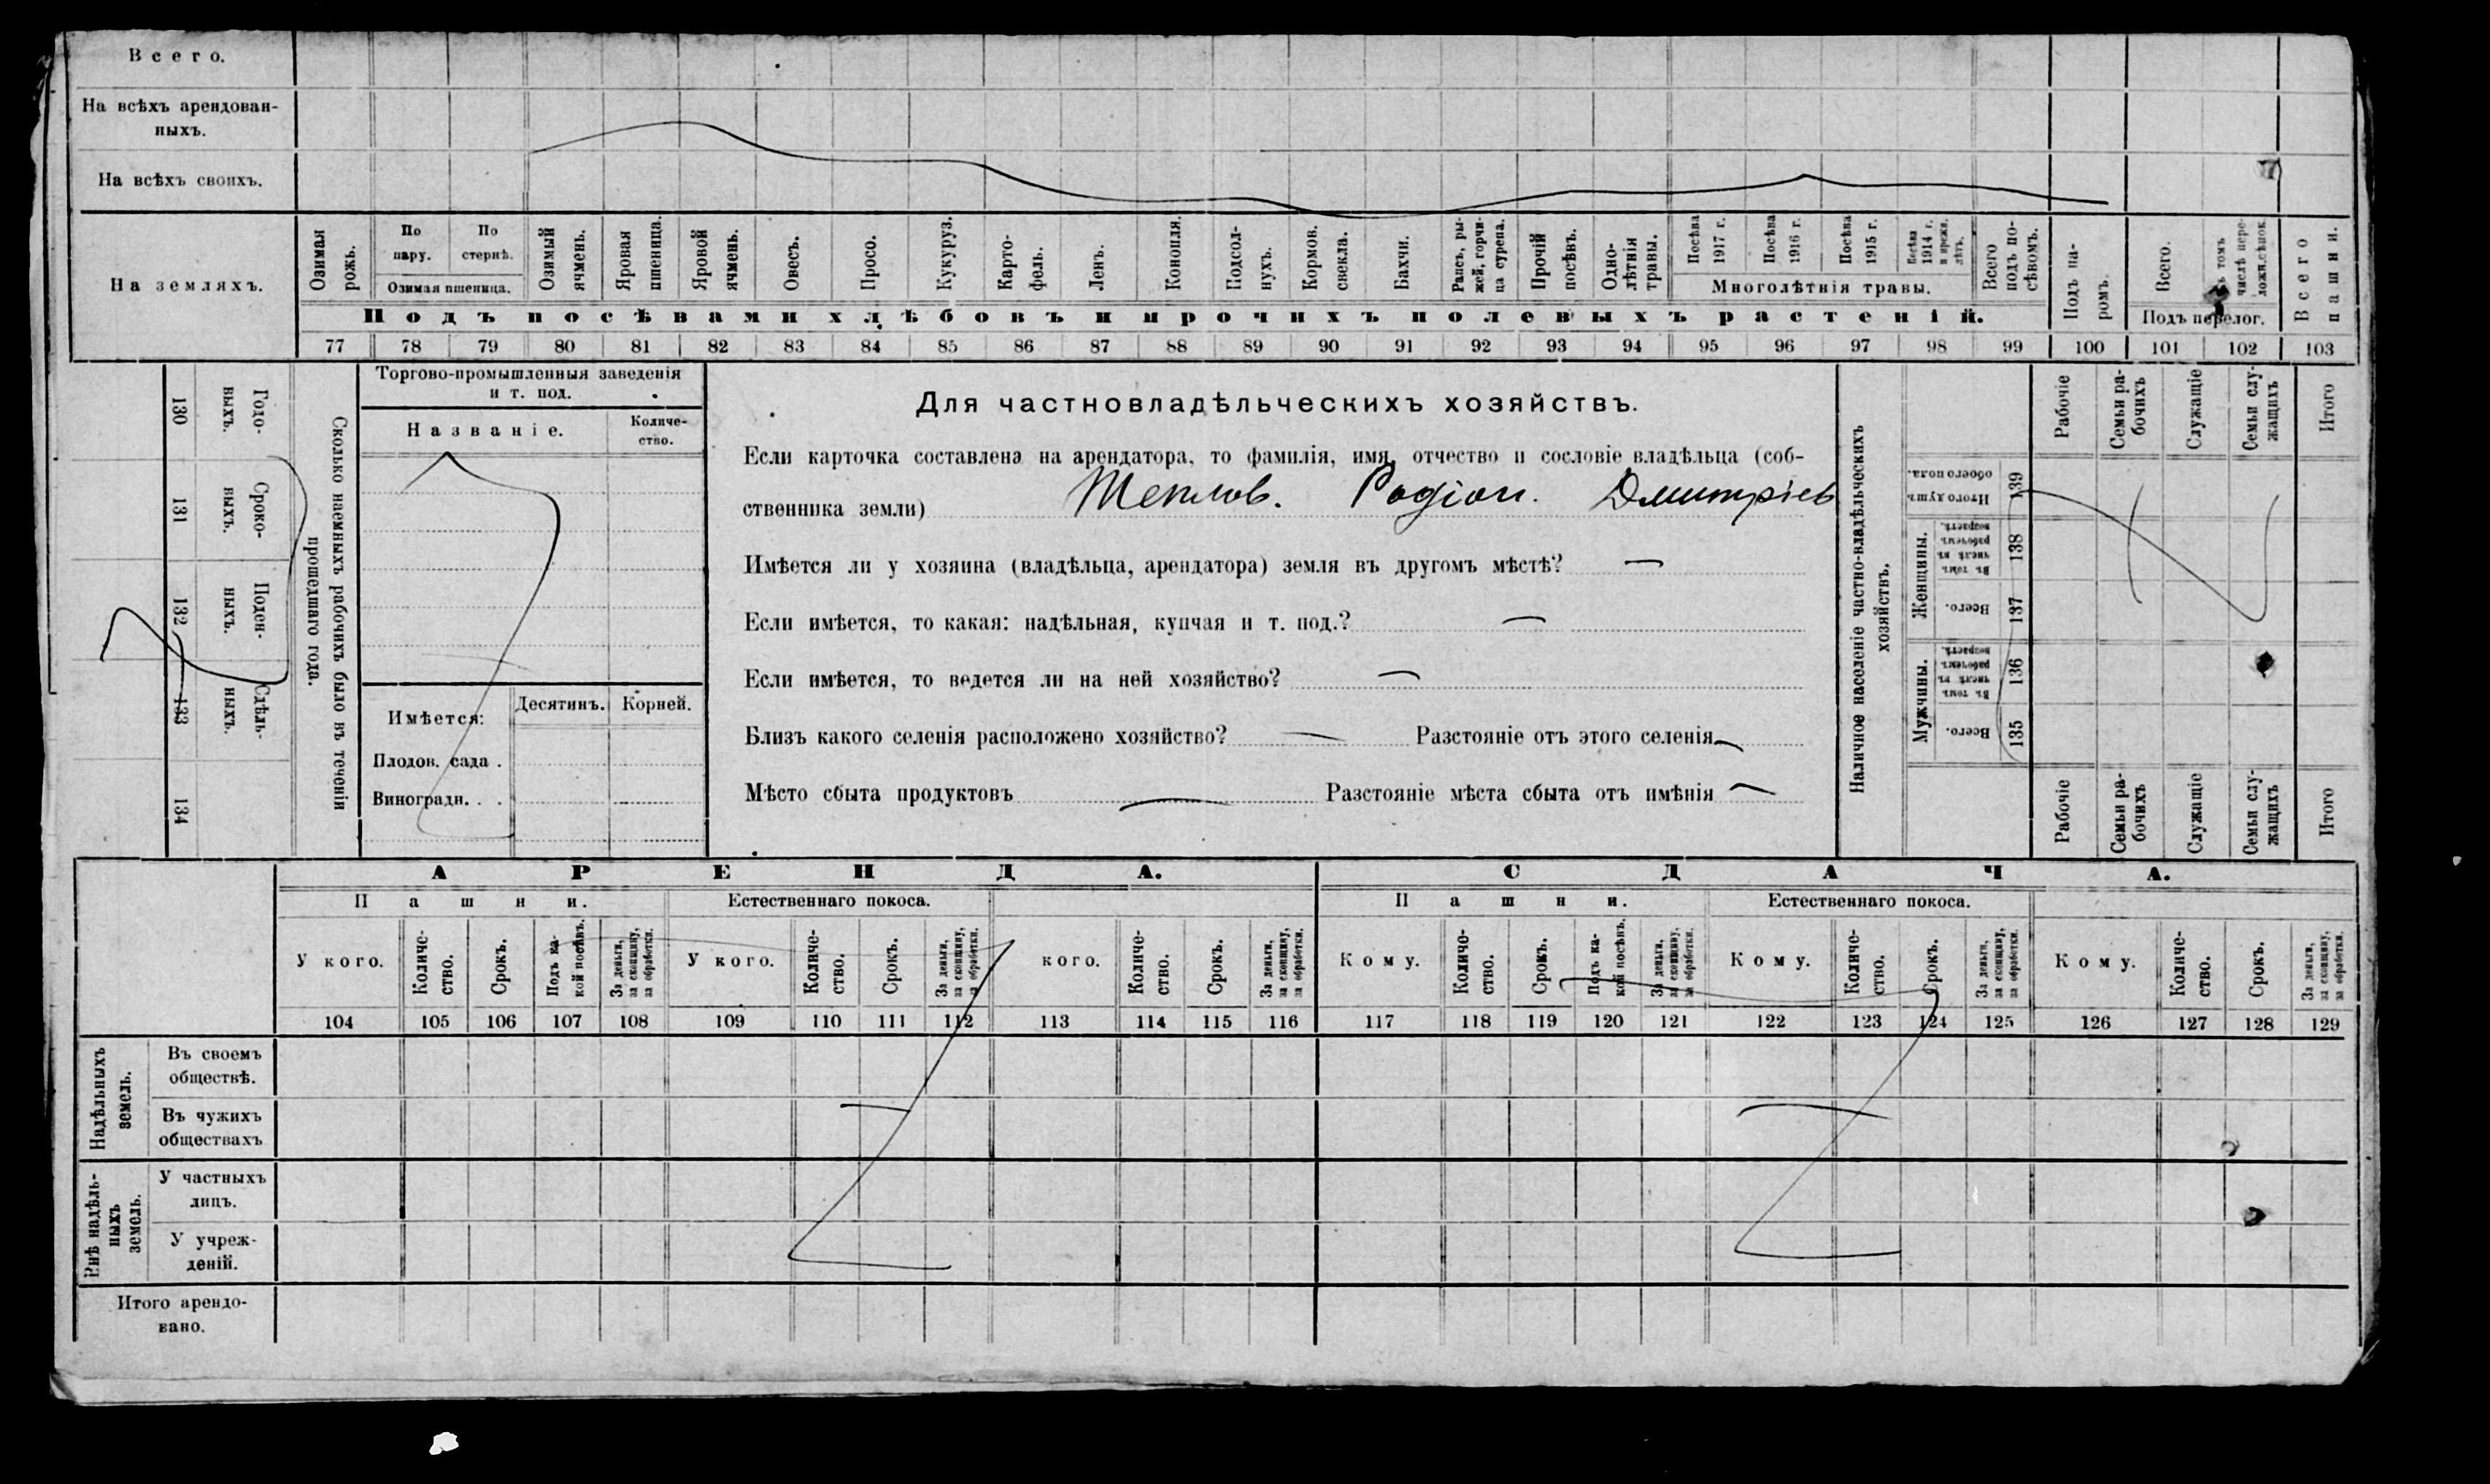 Всего.
На всѣхъ арендован-
ныхъ.
На всѣхъ своихъ.
На земляхъ.
Озимая рожь.
По пару.
По стернѣ.
Озимая пшеница.
Озимый ячмень.
Яровая пшеница.
Яровой ячмень.
Овесъ.
Просо.
Кукуруз.
Карто-
фель.
Ленъ.
Конопля.
Подсол-
нухъ.
Кормов. свекла.
Бахчи.
Рапсъ, ры-
жей, горчи-
ца сурепа.
Прочій посѣвъ.
Одно-
лѣтнія травы.
Посѣва 1917 г.
Посѣва 1916 г.
Посѣва 1915 г.
Посѣва 1914 г.
Многолѣтнія травы.
Всего подъ по-
сѣвомъ.
Подъ па-
ромъ.
Всего.
Подъ перелог.
Всего пашни.
Подъ посѣвами хлѣбовъ и прочихъ полевыхъ растеній.
77 78 79 80 81 82 83 84 85 86 87 88 89 90 91 92 93 94 95 96 97 98 99 100 101 102 103
130 131 132 133 134
Годо-
выхъ.
Сроко-
выхъ.
Поден-
ныхъ.
Сдѣль-
ныхъ.
Сколько наемныхъ рабочихъ было въ теченіи
прошедшаго года.
Торгово-промышленныя заведенія
и т. под.
Названіе.
Количе-
ство.
Имѣется:
Десятинъ. Корней.
Плодов. сада .
Виноградн. . .
Для частновладѣльческихъ хозяйствъ.
Если карточка составлена на арендатора, то фамилія, имя, отчество и сословіе владѣльца (соб-
ственника земли) Теплов. Родіон. Дмитріев
Имѣется ли у хозяина (владѣльца, арендатора) земля въ другомъ мѣстѣ? —
Если имѣется, то какая: надѣльная, купчая и т. под.? —
Если имѣется, то ведется ли на ней хозяйство? —
Близъ какого селенія расположено хозяйство? — Разстояніе отъ этого селенія —
Мѣсто сбыта продуктовъ — Разстояніе мѣста сбыта отъ имѣнія —
Наличное населеніе частно-владѣльческихъ
хозяйствъ.
Рабочіе
Семьи ра-
бочихъ
Служащіе
Семьи слу-
жащихъ
Итого
Итого душъ
обоего пола.
139
Женщины.
Въ томъ числѣ въ рабочемъ возрастѣ.
138
Всего.
137
Мужчины.
Въ томъ числѣ въ рабочемъ возрастѣ.
136
Всего.
135
Рабочіе
Семьи ра-
бочихъ
Служащіе
Семьи слу-
жащихъ
Итого
АРЕНДА. СДАЧА.
Пашни. Естественнаго покоса. Пашни. Естественнаго покоса.
У кого.
Количе-
ство.
Срокъ.
Подъ ка-
кой посѣвъ.
За деньги,
за скопщину,
за обработки.
У кого.
Количе-
ство.
Срокъ.
За деньги,
за скопщину,
за обработки.
кого.
Количе-
ство.
Срокъ.
За деньги,
за скопщину,
за обработки.
Кому.
Количе-
ство.
Срокъ.
Подъ ка-
кой посѣвъ.
За деньги,
за скопщину,
за обработки.
Кому.
Количе-
ство.
Срокъ.
За деньги,
за скопщину,
за обработки.
Кому.
Количе-
ство.
Срокъ.
За деньги,
за скопщину,
за обработки.
104 105 106 107 108 109 110 111 112 113 114 115 116 117 118 119 120 121 122 123 124 125 126 127 128 129
Надѣльныхъ
земель.
Въ своемъ
обществѣ.
Въ чужихъ
обществахъ
Внѣ надѣль-
ныхъ
земель.
У частныхъ
лицъ.
У учреж-
деній.
Итого арендо-
вано.